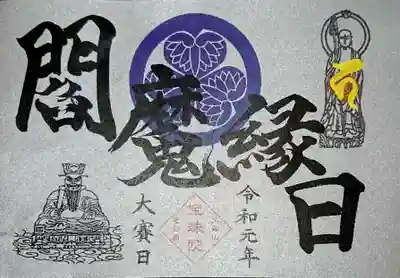 閻魔縁日
令和元年
宝珠院
大賽日